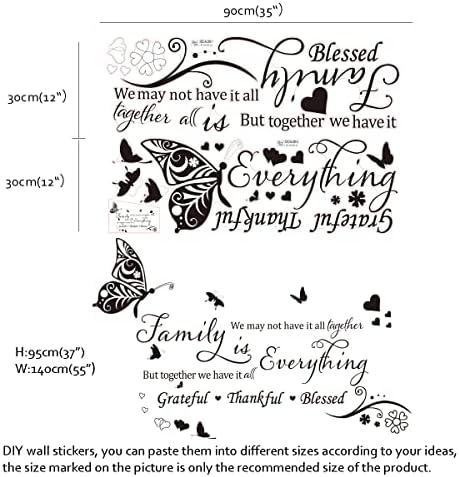 90cm(35")
30cm(12")
Blessed
Family
We may not have it all
together all is
But together we have it
30cm(12")
Everything
Grateful Thankful
Family is
We may not have it all together
Everything
But together we have it all
Grateful Thankful Blessed
H:95cm(37")
W:140cm(55")
DIY wall stickers, you can paste them into different sizes according to your ideas,
the size marked on the picture is only the recommended size of the product.